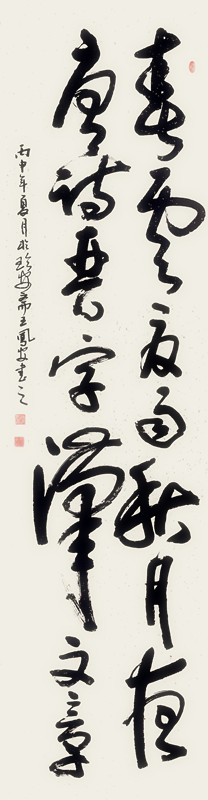 春雲夏雨秋月夜
唐詩晉字漢文章
丙申年夏月於 王鳳安書之